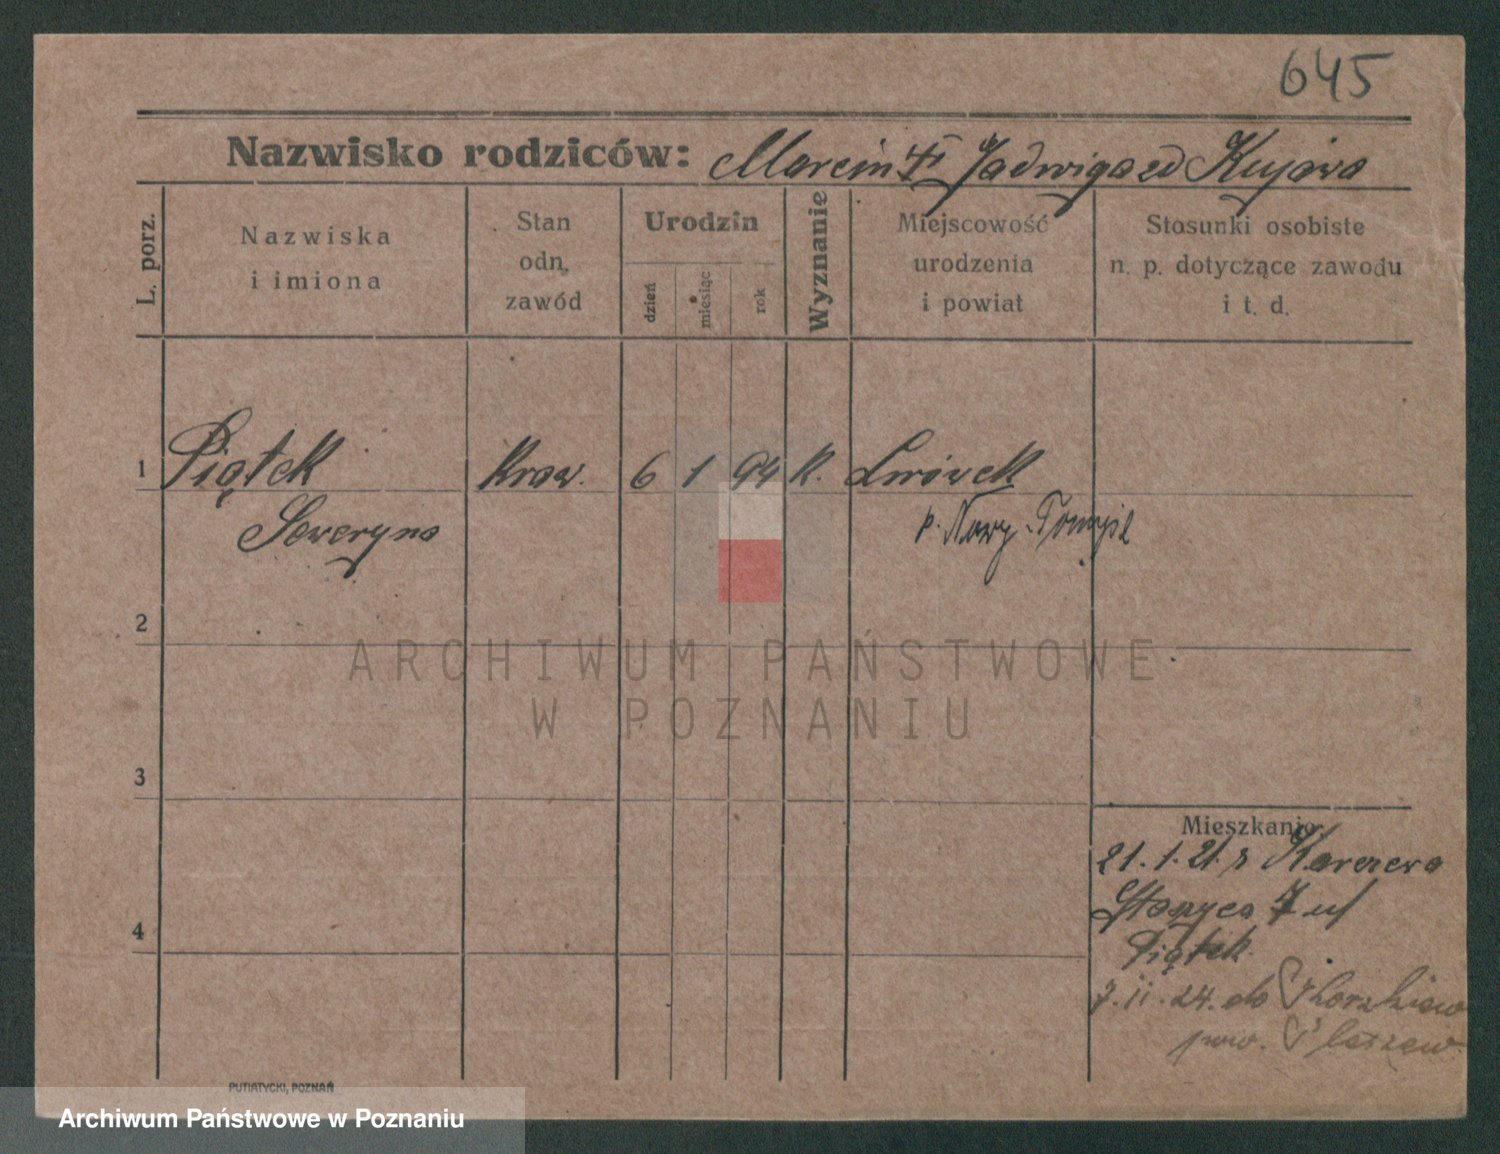 645
Nazwisko rodziców: Marcin Jadwiga zd Kujawa
L. porz.
Nazwiska
i imiona
Stan
odn.
zawód
Urodzin
dzień
miesiąc
rok
Wyznanie
Miejscowość
urodzenia
i powiat
Stosunki osobiste
n. p. dotyczące zawodu
i t. d.
1 Piątek Kraw. 6 1 94 k. Lwówek
Seweryna p. Nowy-Tomyśl
2
ARCHIWUM PAŃSTWOWE
W POZNANIU
3
Mieszkanie
21.1.21. z
7 u/
4
Piątek
7.11.24. do
pow.
PUTIATYCKI, POZNAŃ
Archiwum Państwowe w Poznaniu